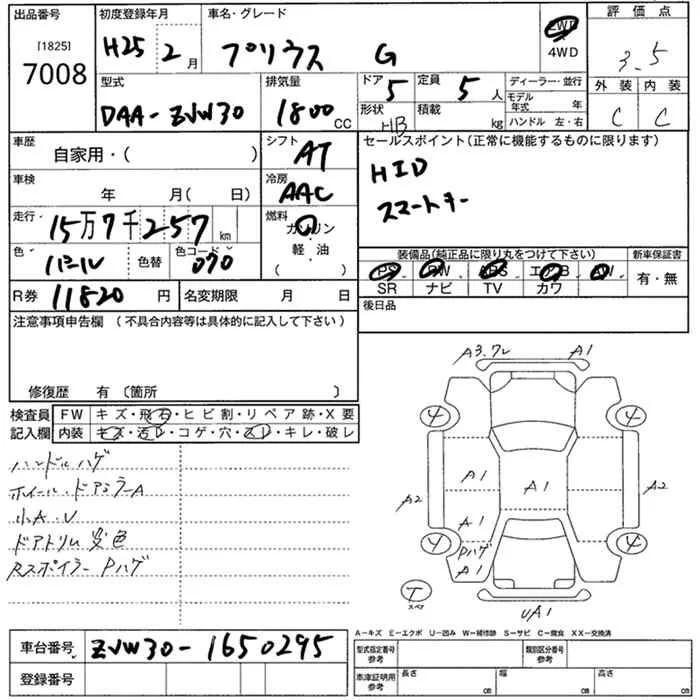 出品番号
[1825]
7008
初度登録年月
H25 2月
車名・グレード
プリウス G
2WD
4WD
評価点
3.5
外装 内装
C C
型式
DAA-ZVW30
排気量
1800 CC
ドア 5
形状 HB
定員 5人
積載 kg
ディーラー・並行
モデル年式 年
ハンドル 左・右
車歴
自家用・( )
シフト
AT
セールスポイント(正常に機能するものに限ります)
HID
スマートキー
車検
年 月( 日)
冷房
AAC
走行
15万7千257 km
燃料
ガソリン
・
軽・油
( )
色
パール
色替
色コード
070
装備品(純正品に限り丸をつけて下さい)
PS PW ABS エアB AW
SR ナビ TV カワ
新車保証書
有・無
R券 11820 円
名変期限 月 日
後日品
注意事項申告欄 (不具合内容等は具体的に記入して下さい)
修復歴 有 〔箇所 〕
検査員記入欄
FW キズ・飛石・ヒビ割・リペア跡・X要
内装 キズ・汚レ・コゲ・穴・スレ・キレ・破レ
ハンドルハゲ
ホイール・ドアミラーA
小A・U
ドアトリム変色
Rスポイラー Pハゲ
A3.アレ A1
4 4
A1 A1
A2 A2
A1
Pハゲ
A1
4 4
T
スペア
UA1
A-キズ E-エクボ U-凹み W-補修跡 S-サビ C-腐食 XX-交換済
車台番号 ZVW30-1650295
登録番号
型式指定番号
参考
類別区分番号
参考
車庫証明用
参考
長さ cm
幅 cm
高さ cm